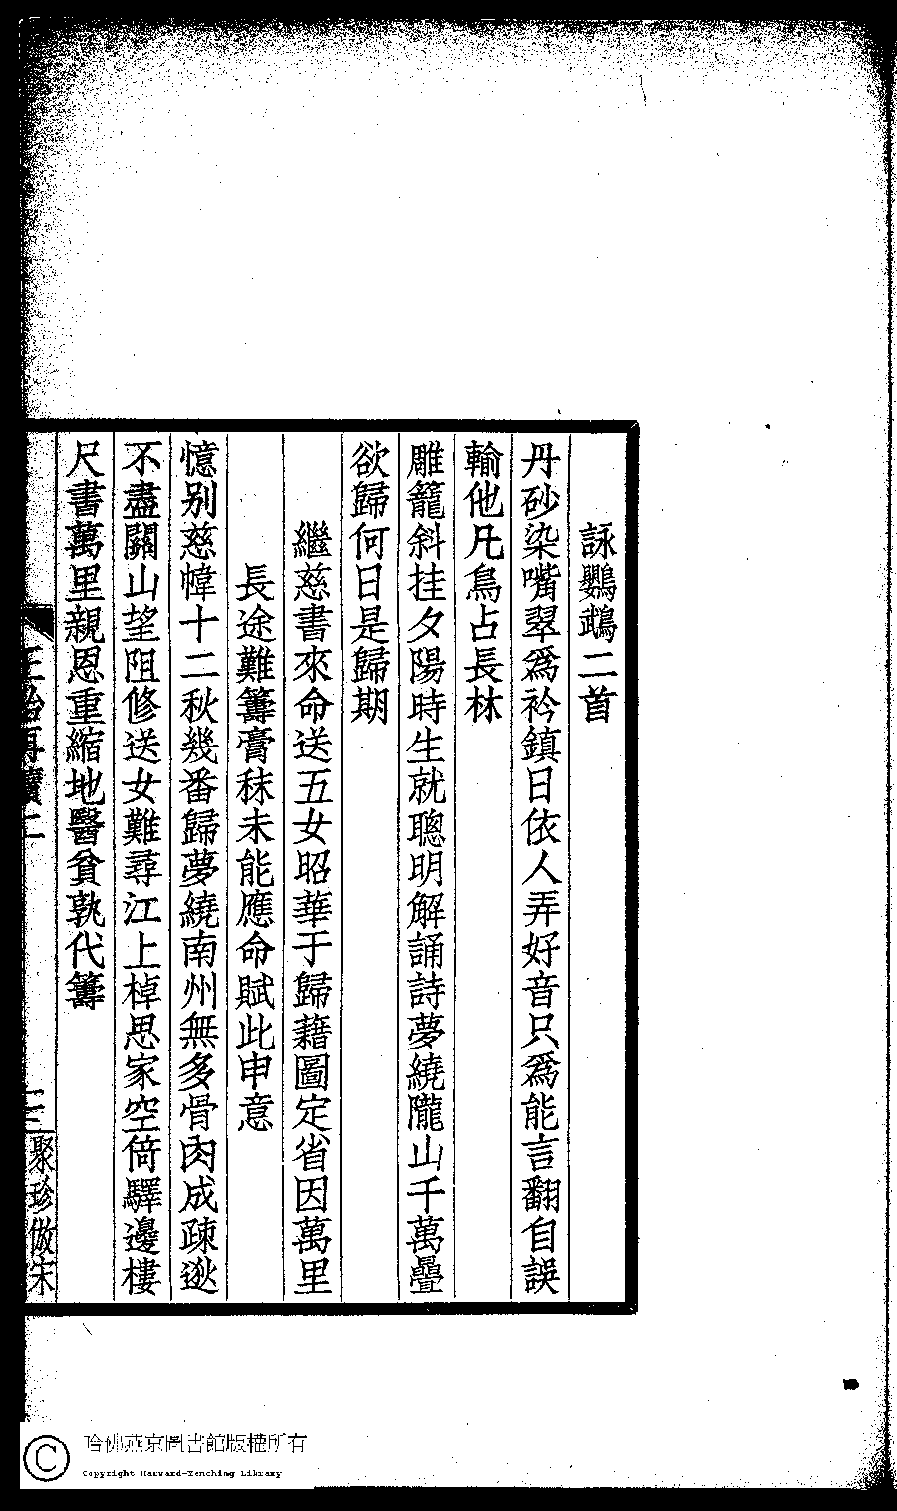 詠鸚鵡二首
丹砂染嘴翠爲衿鎮日依人弄好音只爲能言翻自誤
輸他凡鳥占長林
雕籠斜挂夕陽時生就聰明解誦詩夢繞隴山千萬疊
欲歸何日是歸期
繼慈書來命送五女昭華于歸藉圖定省因萬里
長途難籌膏秣未能應命賦此申意
憶别慈幃十二秋幾番歸夢繞南州無多骨肉成疎逖
不盡關山望阻修送女難尋江上棹思家空倚驛邊樓
尺書萬里親恩重縮地醫貧孰代籌
二
聚珍倣宋
哈佛燕京圖書館版權所有
Copyright Harvard-Yenching Library